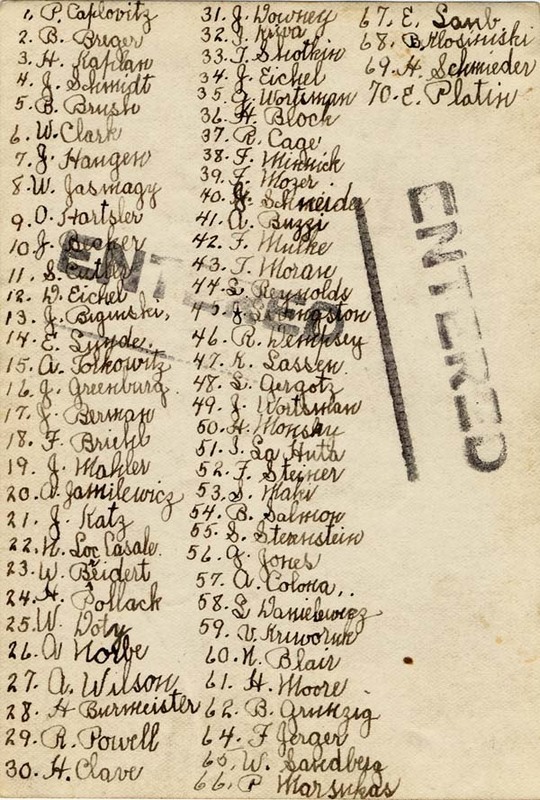 1. P. Caplovitz
2. B. Briger
3. H. Kaplan
4. J. Schmidt
5. B. Brush
6. W. Clark
7. J. Haugen
8. W. Jasmagy
9. O. Hartsler
10 J. Becker
11. S. Cutler
12. W. Eichel
13. J. Biginski,
14. E. Lunde.
15. A. Tolkowitz
16. J. Greenburg.
17. J. Berman
18. F. Briehl
19. J. Mahler
20. A. Jamilewicz
21. J. Katz
22. N. Loc Casale.
23. W. Beidert
24. H. Pollack
25. W. Doty
26. A Nolbe
27. A. Wilson
28. H Burmeister
29. R. Powell
30. H. Clave
31. J. Downey
32. J.
33. T. Snotkin
34. J. Eichel
35. G. Wortsman
36. H. Bloch
37. R. Cage
38. F. Minnick
39. F. Mozer
40. J. Schneider
41. A. Buzzi
42. F. Mulke
43. T. Moran
44. L. Reynolds
45. Livingston
46. R. Dempsey
47. K. Lassen.
48. L. Gergotz
49. J. Wortsman
50. H. Monsky
51. J. La Huta
52. F. Steiner
53. S. Mahr
54. B. Salmon
55. S. Sternstein
56. J. Jones
57. A. Colona,.
58. L Danielewicz
59. V. Kriworuk
60. N. Blair
61. H. Moore.
62. B. Grunzig
64. F Jerger
65. W. Sandberg
66. P Marsukas
67. E. Sanb.
68. B. Klosinski
69. H. Schmieder
70. E. Platin
ENTERED
ENTERED